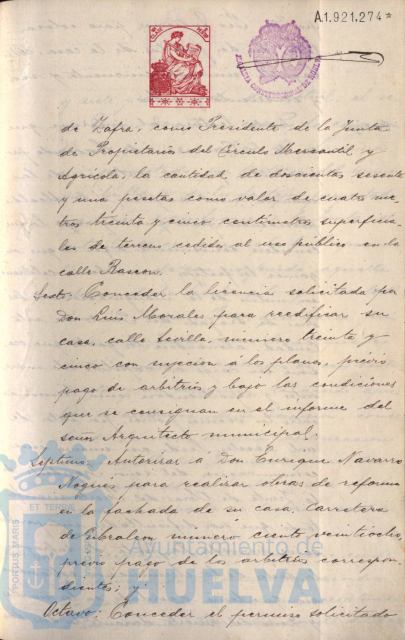 A.1.921.274*
ALCALDIA CONSTITUCIONAL DE HUELVA
de Zafra, como Presidente de la Junta
de Propietarios del Círculo Mercantil y
Agrícola, la cantidad de doscientas sesenta
y una pesetas como valor de cuatro me-
tros treinta y cinco centímetros superficia-
les de terreno cedido al uso público en la
calle Rascon.
Sexto: Conceder la licencia solicitada por
Don Luis Morales para reedificar su
casa, calle Sevilla, número treinta y
cinco con sujecion á los planos, previo
pago de arbitrios y bajo las condiciones
que se consignan en el informe del
señor Arquitecto municipal.
Septimo: Autorizar á Don Enrique Navarro
Nogués para realizar obras de reforma
en la fachada de su casa, Carretera
de Gibraleon numero ciento veintiocho,
previo pago de los arbitrios correspon-
dientes; y
Octavo: Conceder el permiso solicitado
PORTUS MARIS ET TERRÆ
Ayuntamiento de
HUELVA